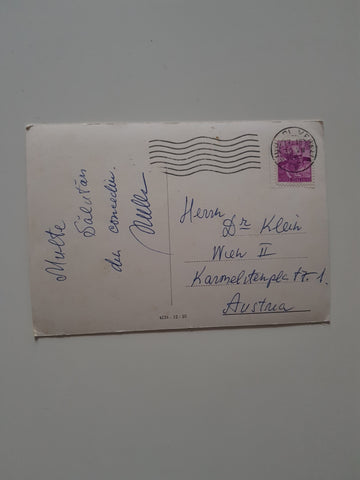 Multe
Salutări
din concediu.
Herrn
Dr Klein
Wien II
Karmeliterplatz 1.
Austria